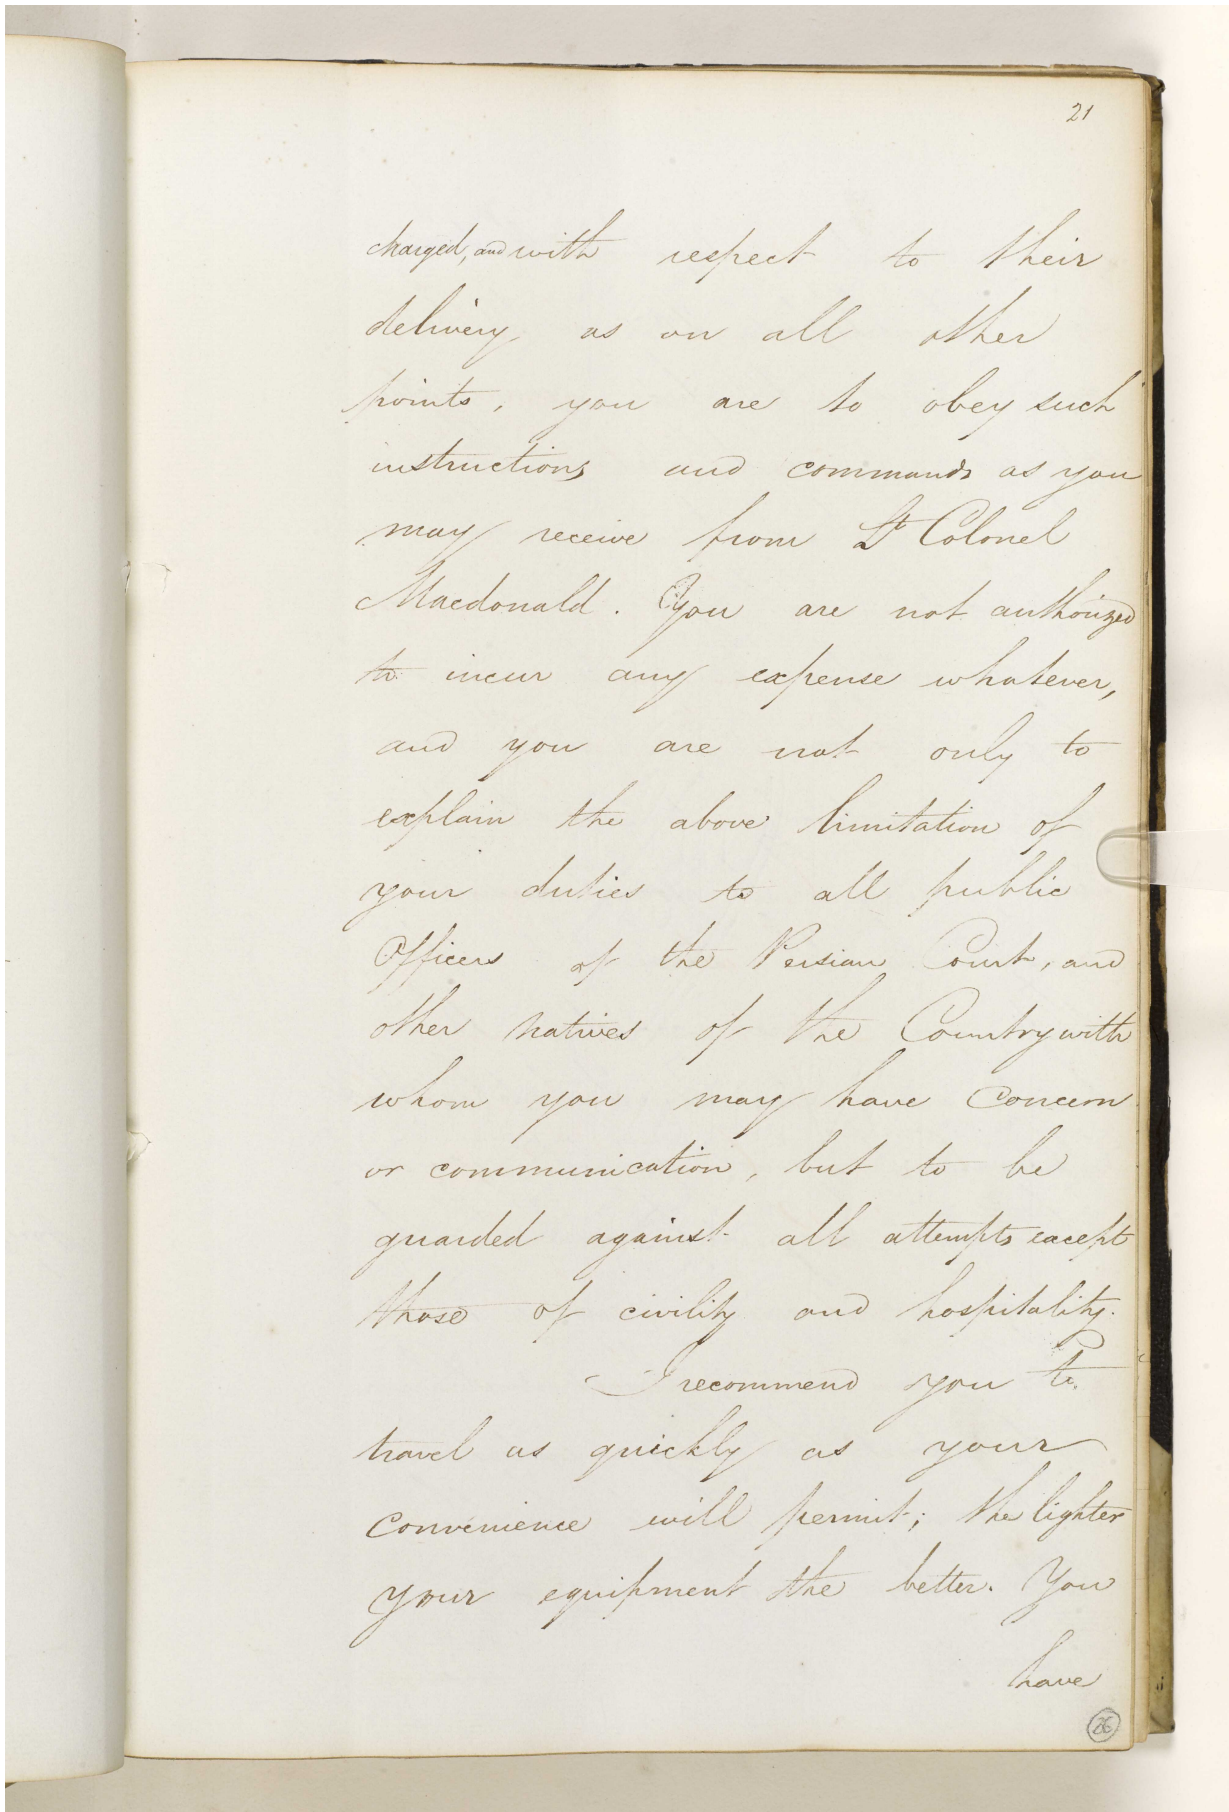 21
charged, and with respect to their
delivery as on all other
points, you are to obey such
instructions and commands as you
may receive from Lt Colonel
Macdonald. You are not authorized
to incur any expense whatever,
and you are not only to
explain the above limitation of
your duties to all public
Officers of the Persian Court, and
other natives of the Country with
whom you may have Concern
or communication, but to be
guarded against all attempts except
those of civility and hospitality.
I recommend you to
travel as quickly as your
convenience will permit; the lighter
your equipment the better. You
have
26